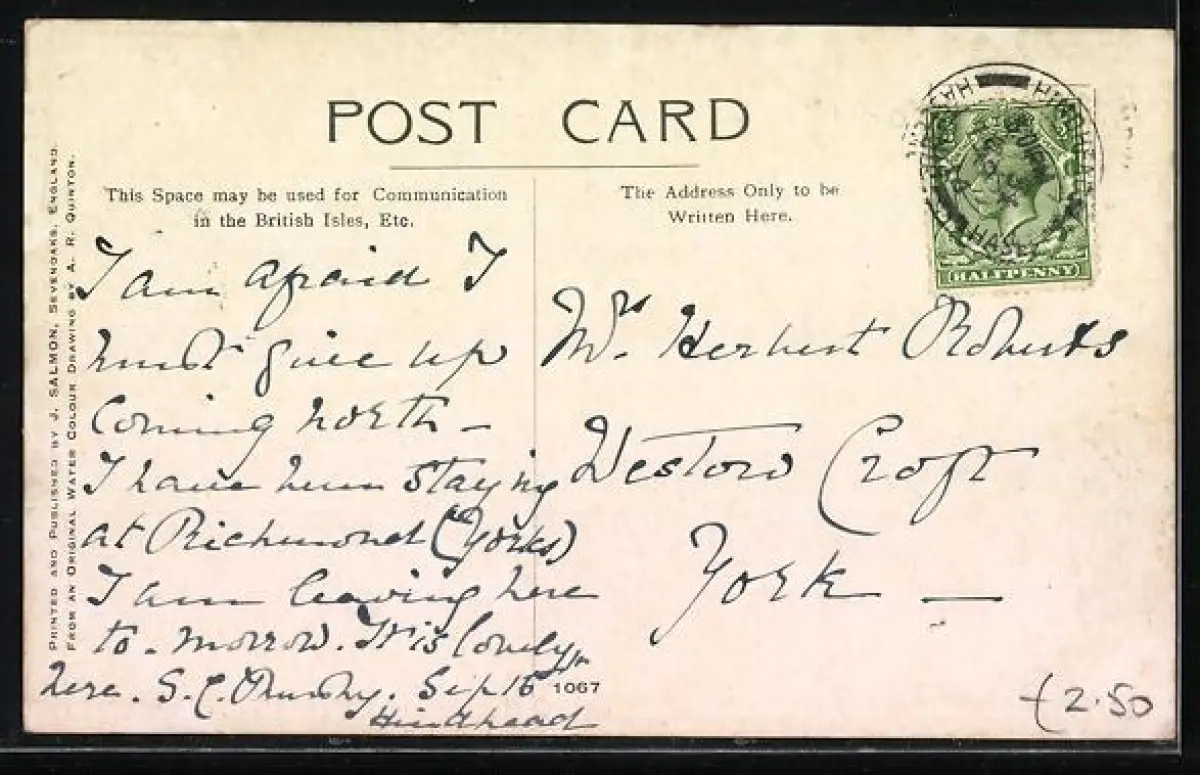 POST CARD
This Space may be used for Communication
in the British Isles, Etc.
The Address Only to be
Written Here.
HALFPENNY
I am afraid I
must give up
coming north —
I have been staying
at Richmond (Yorks)
I am leaving here
to-morrow. It is lovely
here. S. C. Sep 15th
Hindhead
Mrs. Herbert Roberts
Westow Croft
York —
1067
£2.50
PRINTED AND PUBLISHED BY J. SALMON, SEVENOAKS, ENGLAND.
FROM AN ORIGINAL WATER COLOUR DRAWING BY A. R. QUINTON.